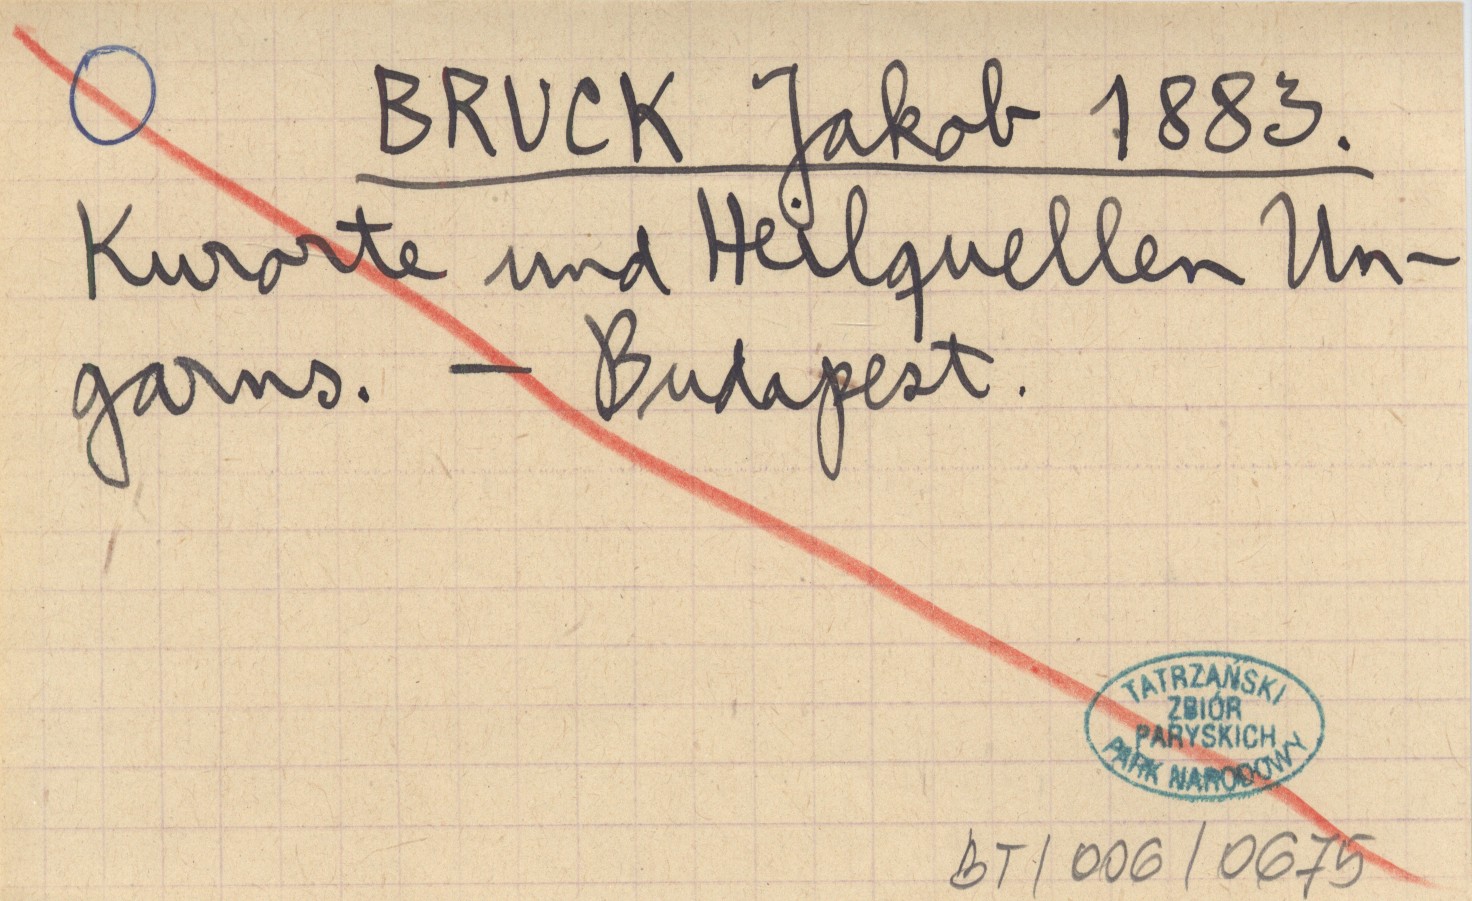 BRUCK Jakob 1883.
Kurorte und Heilquellen Un-
garns. — Budapest.
TATRZAŃSKI
ZBIÓR
PARYSKICH
PARK NARODOWY
BT/006/0675